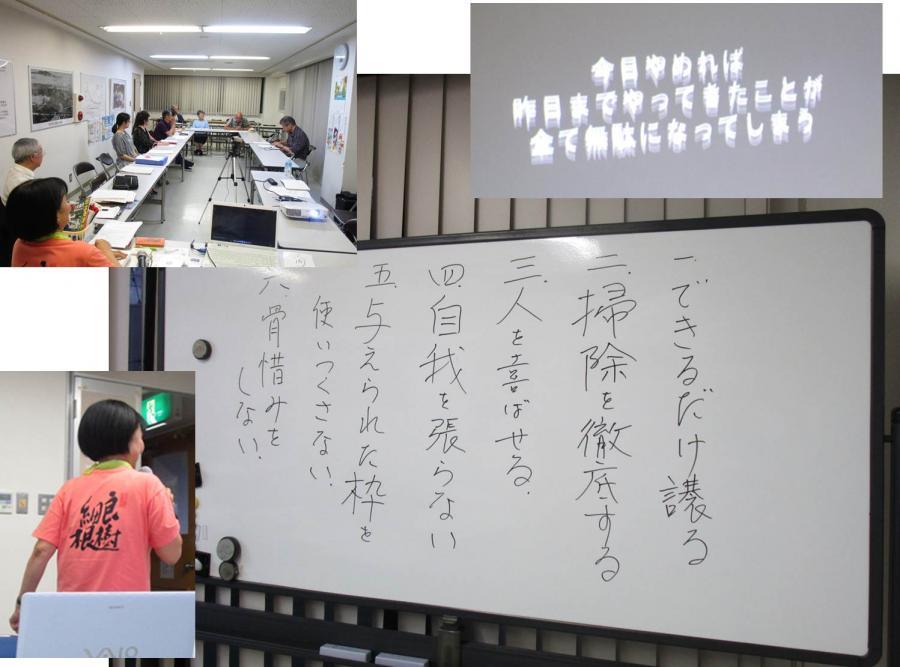 今日やめれば
昨日までやってきたことが
全て無駄になってしまう
一.できるだけ譲る
二.掃除を徹底する
三.人を喜ばせる.
四.自我を張らない
五.与えられた枠を
使いつくさない.
六.骨惜みを
しない.
良樹
細根
SONY
VAIO